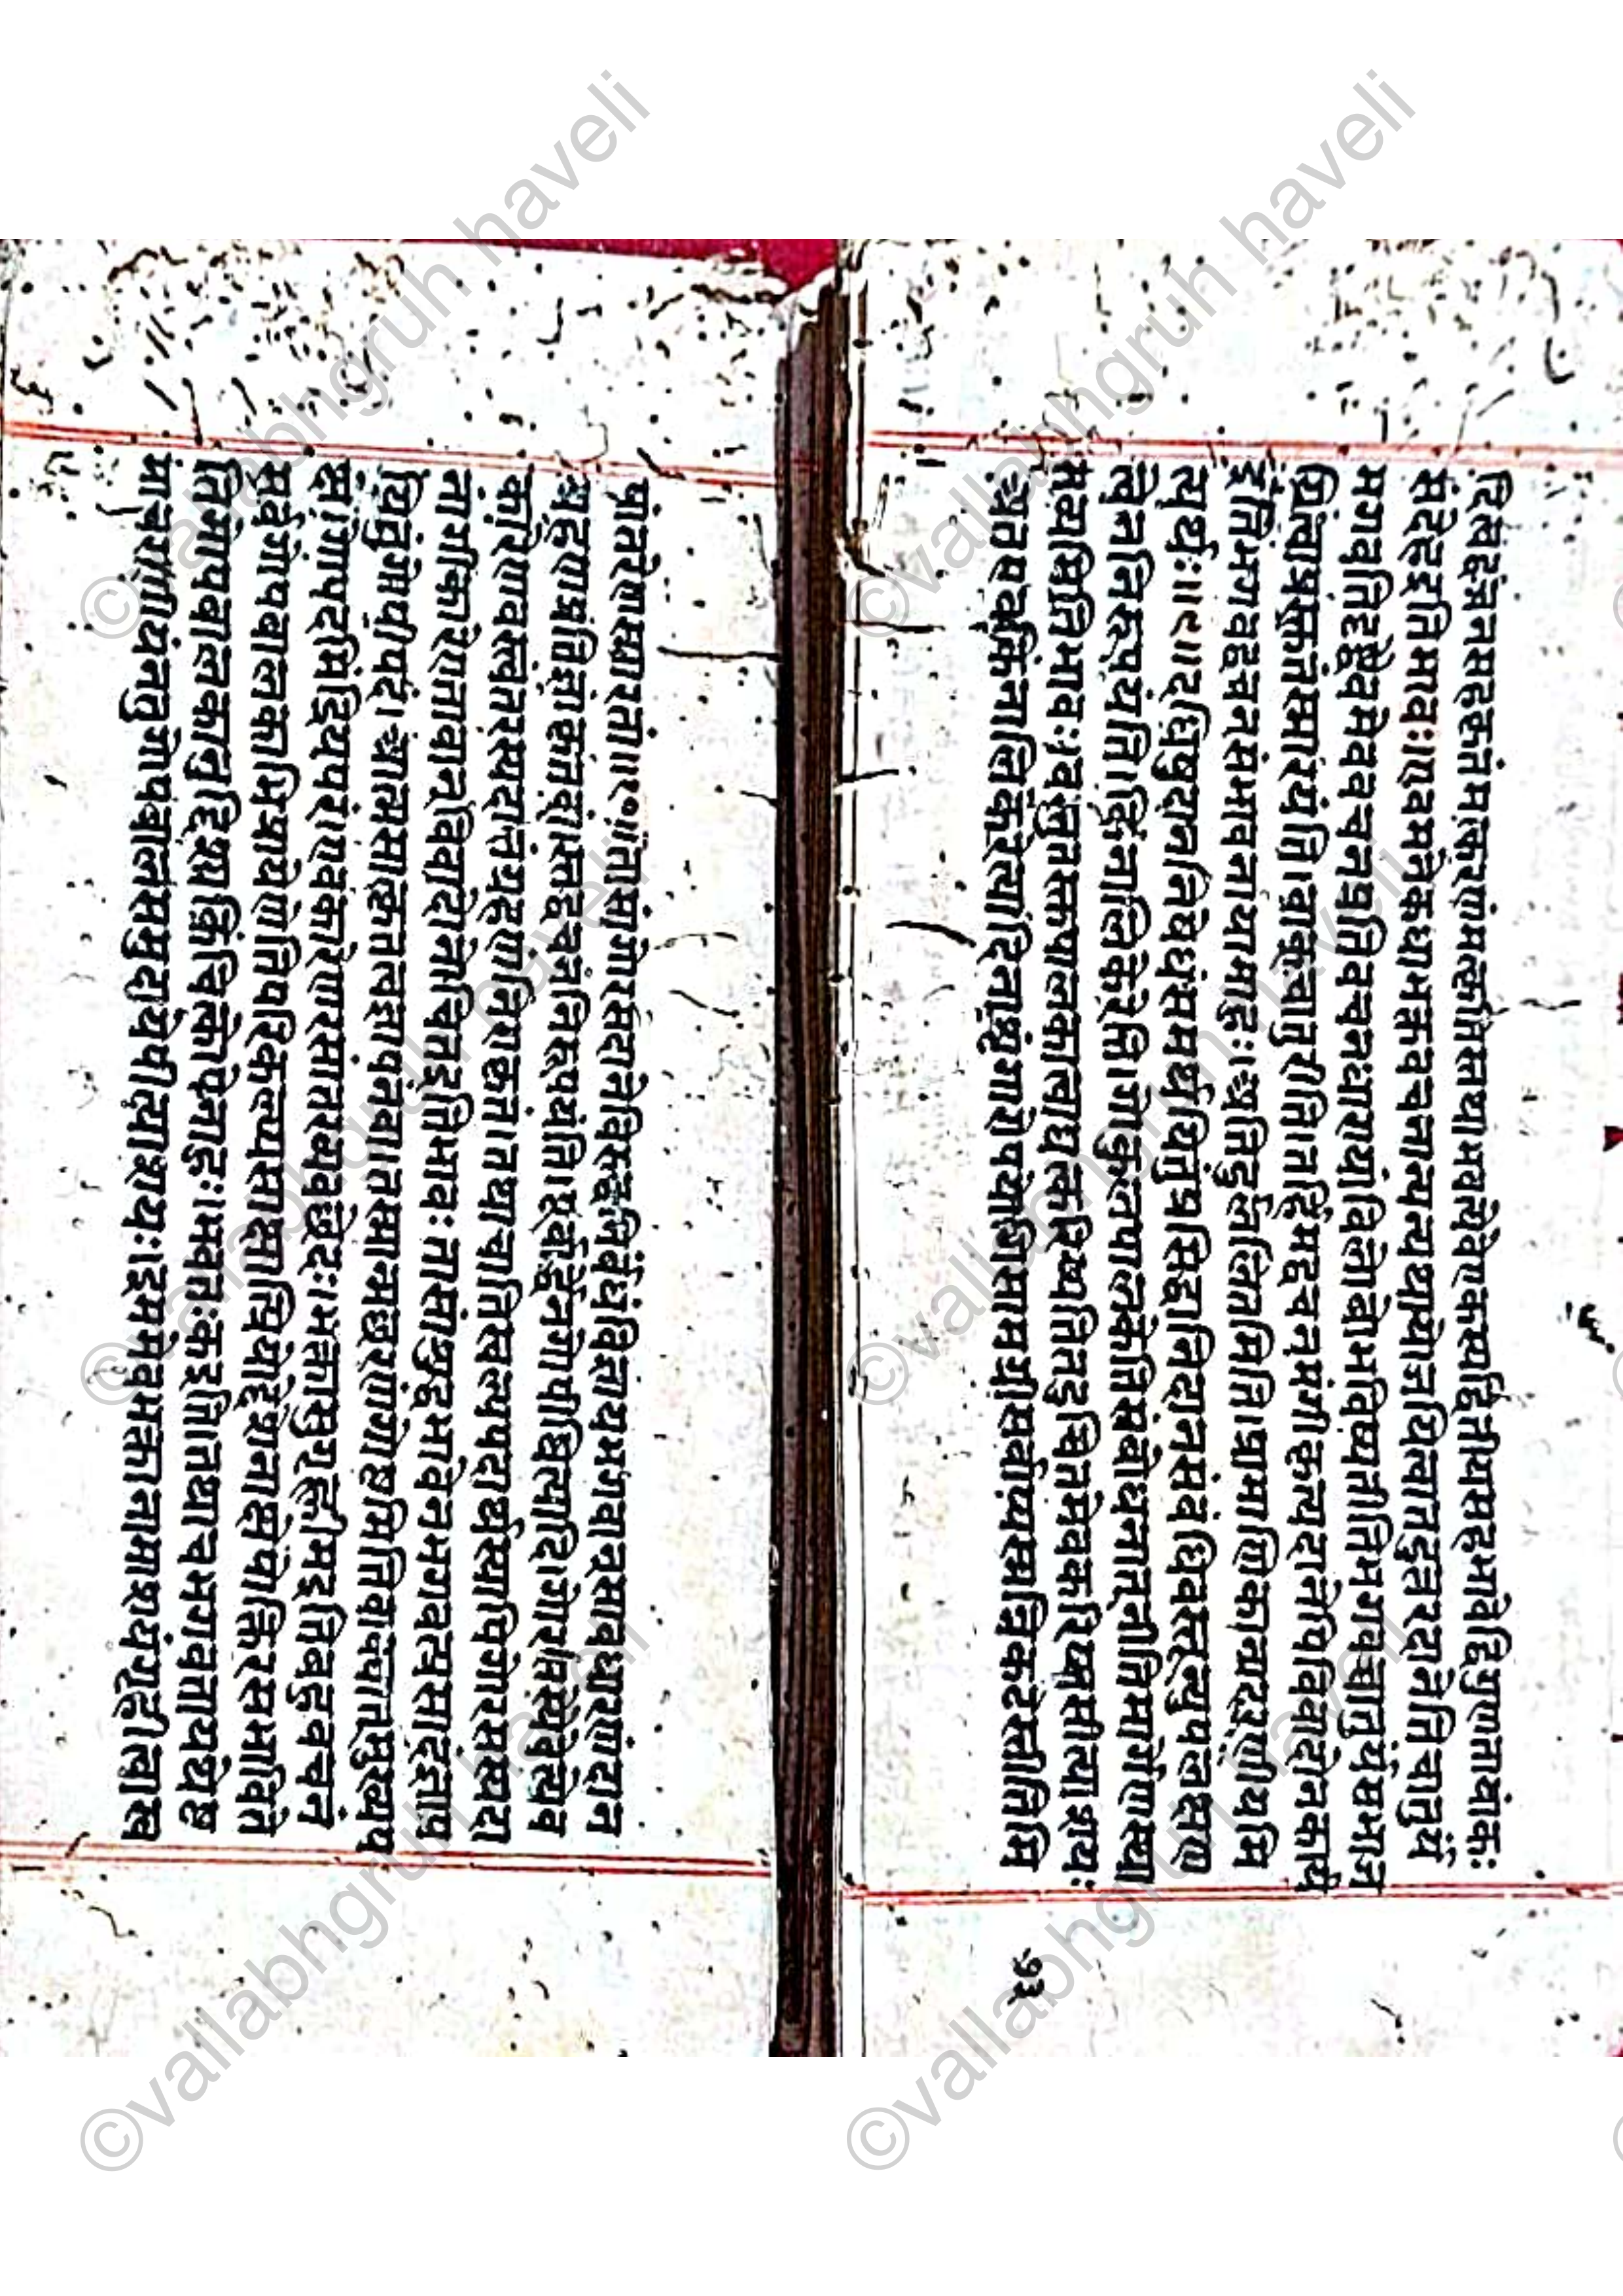 रिसद्वंननसहकृतंमत्करणंमत्कृतिस्तथाभवत्येवएकस्यद्वितीयसद्भावेद्विगुणतावांकः
संदेहइतिभावः।एवमनेकधाभक्तवचनान्यन्यथायोजयित्वातदुत्तरदानेतिचातुर्यं
भगवतिदृष्ट्वैवमेववचनप्रतिवचनधारायांविलंबोभविष्यतीतिभगवच्चातुर्यंसभाज
यित्वाप्रकृतंस्मारयंति।वाक्चातुरीति।तर्हिमद्वचनमंगीकृत्यदानेपिविवादोनकार्य
इतिभगवद्वचनसंभावनायामाहुः।अतिदुर्लालितमिति।प्रामाणिकान्यादरणीयमि
त्यर्थः॥९॥दधिषुदाननिषेधंसमर्थयितुंप्रसिद्धानिदानसंबंधिवस्तून्युपलक्षण
त्वेननिरूपयंति।किंनालिकेरेति।गोकुलपालकेतिसंबोधनात्नीतिमार्गेणास्था
भिःस्थितिभावः।वस्तुतस्तुपालकात्वाद्यत्करिष्यतितदुचितमेवकरिष्यसीत्याशयः
अतएवकिंनालिकेरेत्यादिनाशृंगारोपयोगिसामग्रीसर्वाप्यस्मन्निकटेस्तीतिमि
१३
षांतरेणस्मारितं॥१०॥तासांगोरसदानेविरुद्धनिर्बंधंविज्ञायभगवान्रसावधारणंदान
ग्रहणप्रतिज्ञाकृतवांस्तद्वचनंनिरूपयंति।एवंर्द्धनगोपाधिपत्यादि।गोरसस्येवत्येव
कारेणावस्त्वंतरस्यदानग्रहणंनिराकृतं।तथाचातिस्वल्पपदार्थस्यापिगोरसस्यदा
नांगीकारेणतावान्विवादोनोचितइतिभावः तासांशुद्धभावेनभगवत्प्रसादज्ञाप
यितुंगोपीपदं।आत्मसात्कृतत्वज्ञापनंवा।तस्मान्मच्छरणंगोष्ठमितिवाक्यात्मुख्यप
क्षां।गोपदमिंद्रियपरं।एवकारेणरसांतरव्यवच्छेदः।भक्तासुगृह्णीमइतिबहुवचनं
सर्वगोपबालकाभिप्रायेणतिपरिकल्प्यसाक्षात्प्रियोद्देशेनाक्षेपोक्तिरसभाविते
तिगोपबालकानुद्दिश्यकिंचित्कोपेनाहुः।भवतःकइति।तथाचभगवतायथेष्ट
माचरणीयंनतुगोपबालंसमुदायेपीत्याशयः।इममेवभक्तानामाशयंगृहीत्वास्व